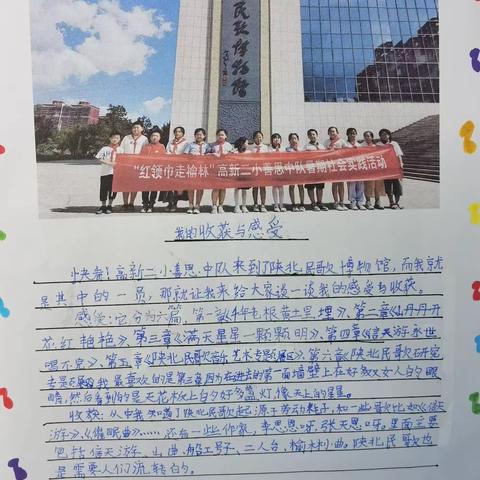 民歌博物馆
"红领巾走榆林"高新二小善思中队暑期社会实践活动
我的收获与感受
快看!高新二小善思中队来到了陕北民歌博物馆,而我就
是其中的一员,那就让我来给大家谈一谈我的感受与收获。
感觉:它分为六篇,第一章《千年老根黄土里埋》、第二章《山丹丹开
花红艳艳》、第三章《满天星星一颗颗明》、第四章《信天游永世
唱不完》、第五章《陕北民歌音乐艺术专题展区》、第六章《陕北民歌研究
我最喜欢的是第三章因为在进去的第一面墙壁上有好多双女人的眼
睛,然后看到的是天花板上的好多蓝灯,像天上的星星。
收获:从中我知道了陕北民歌起源于劳动号子,知一些歌比如《信天
游》、《催眠曲》……还有一些作家,李思恩呀,张天恩呀。里面主要
包括信天游、山曲、船工号子、二人台、榆林小曲。陕北民歌也
是需要人们流转的。